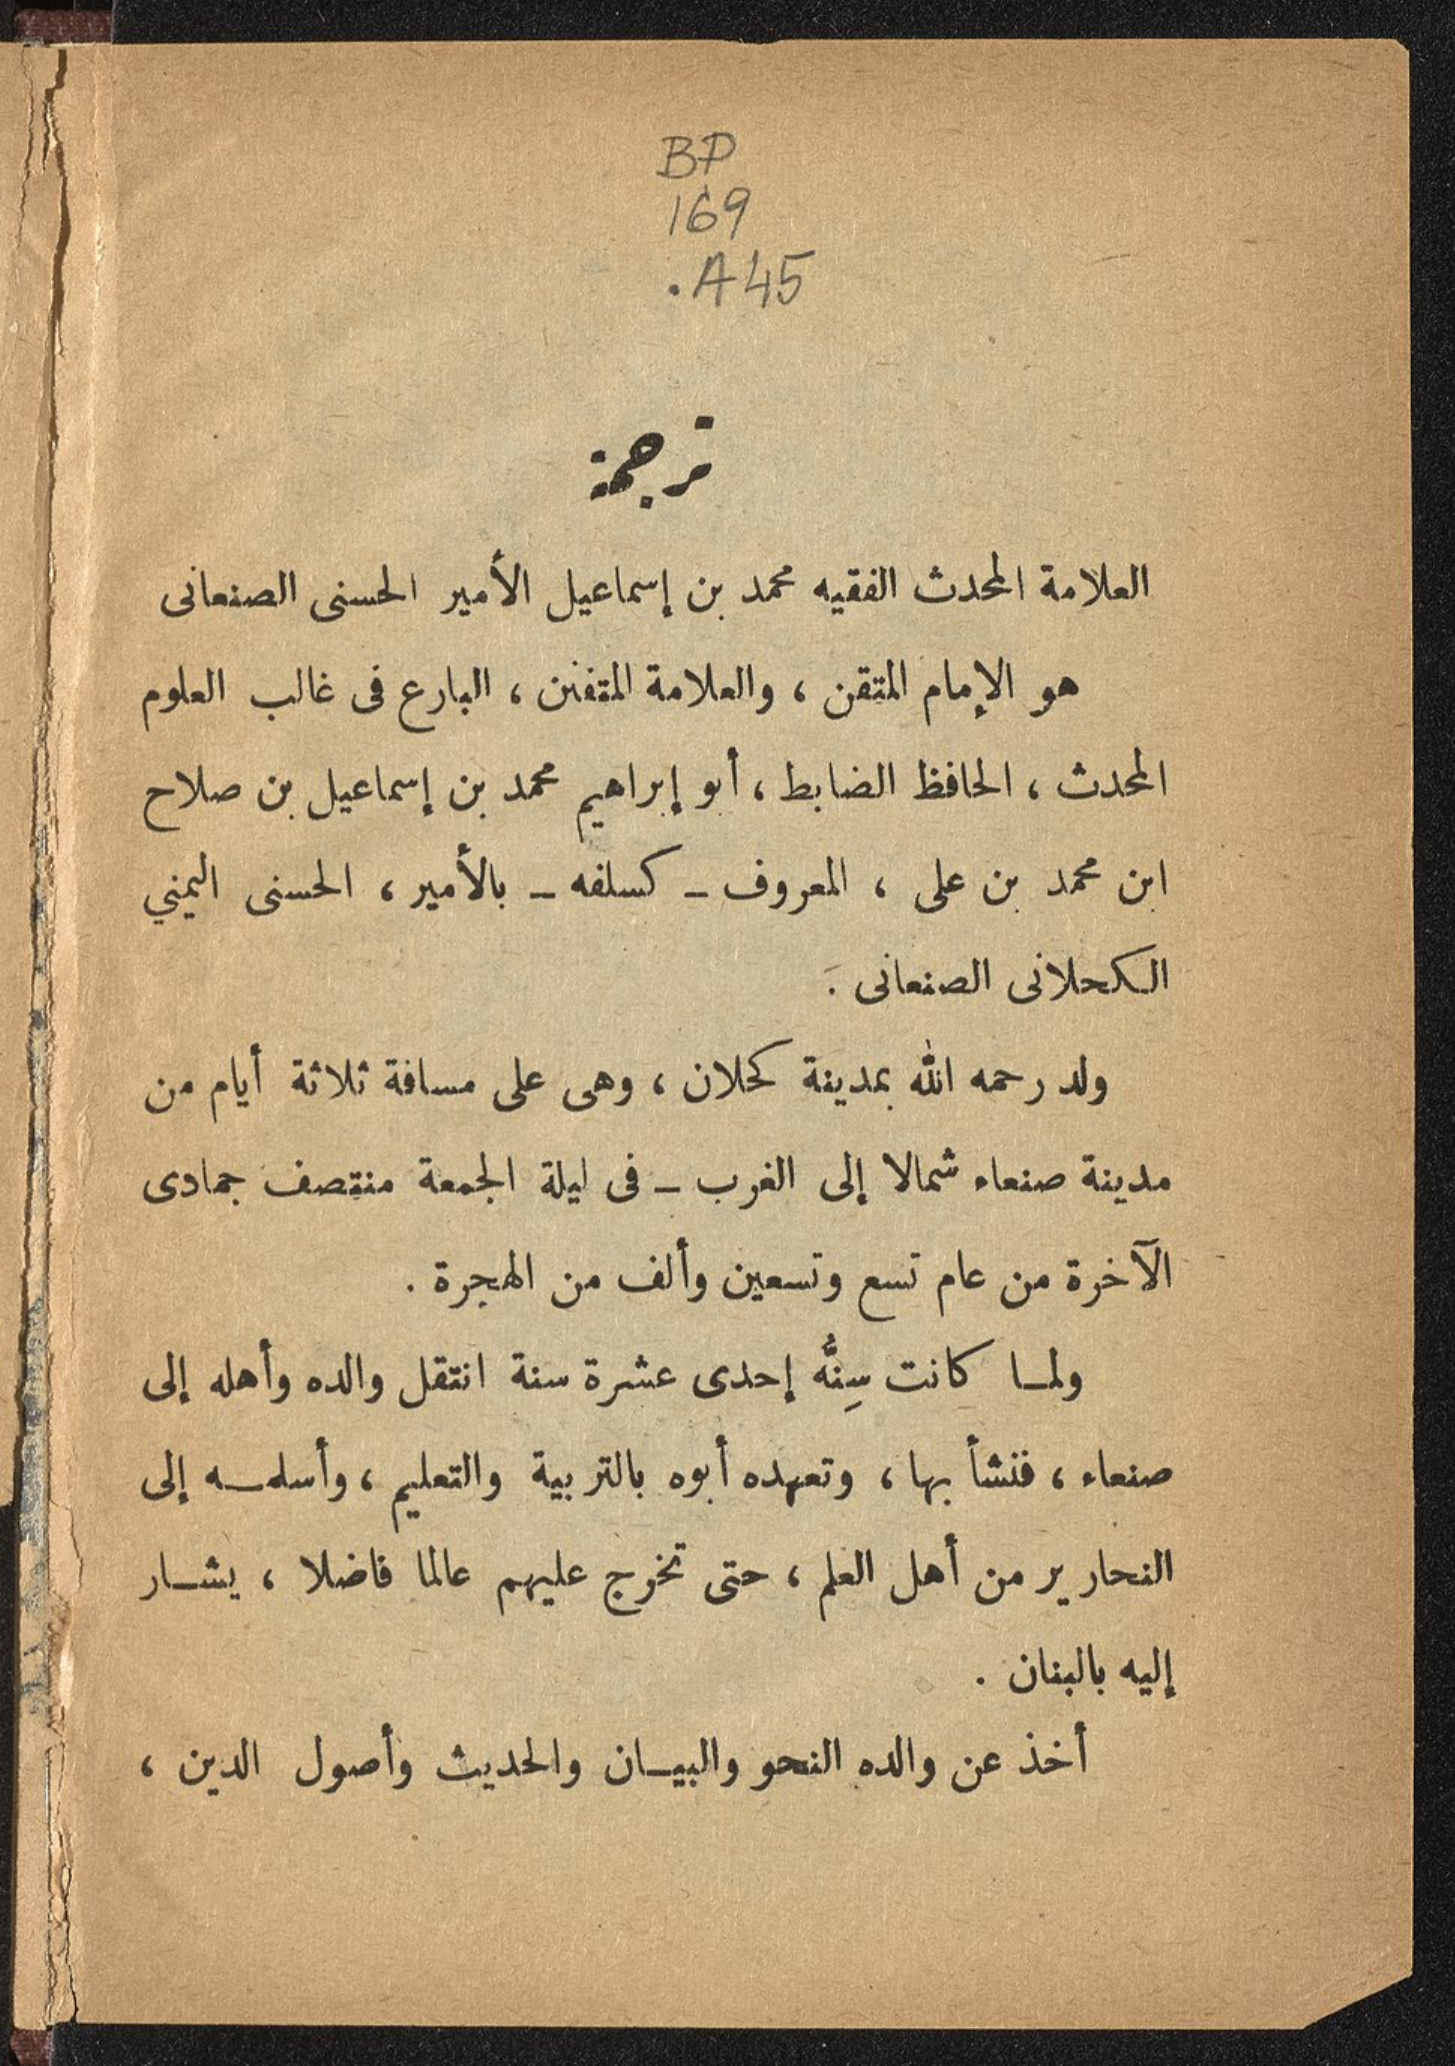 BP
169
.A45
ترجمة
العلامة المحدث الفقيه محمد بن إسماعيل الأمير الحسنى الصنعانى
هو الإمام المتقن ، والعلامة المتفنن ، البارع فى غالب العلوم
المحدث ، الحافظ الضابط ، أبو إبراهيم محمد بن إسماعيل بن صلاح
ابن محمد بن على ، المعروف - كسلفه - بالأمير ، الحسنى اليمني
الكحلانى الصنعانى .
ولد رحمه الله بمدينة كحلان ، وهى على مسافة ثلاثة أيام من
مدينة صنعاء شمالا إلى الغرب - فى ليلة الجمعة منتصف جمادى
الآخرة من عام تسع وتسعين وألف من الهجرة .
ولمـا كانت سِنُّه إحدى عشرة سنة انتقل والده وأهله إلى
صنعاء ، فنشأ بها ، وتعهده أبوه بالتربية والتعليم ، وأسلمـه إلى
النحارير من أهل العلم ، حتى تخرج عليهم عالما فاضلا ، يشـار
إليه بالبنان .
أخذ عن والده النحو والبيـان والحديث وأصول الدين ،